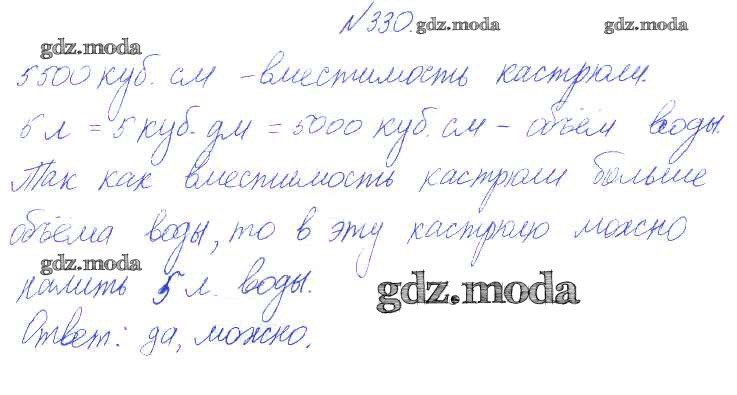 №330.
gdz.moda gdz.moda
gdz.moda
5500 куб. см - вместимость кастрюли.
5 л = 5 куб. дм = 5000 куб. см - объём воды.
Так как вместимость кастрюли больше
объёма воды, то в эту кастрюлю можно
gdz.moda
налить 5 л. воды.
gdz.moda
Ответ: да, можно.